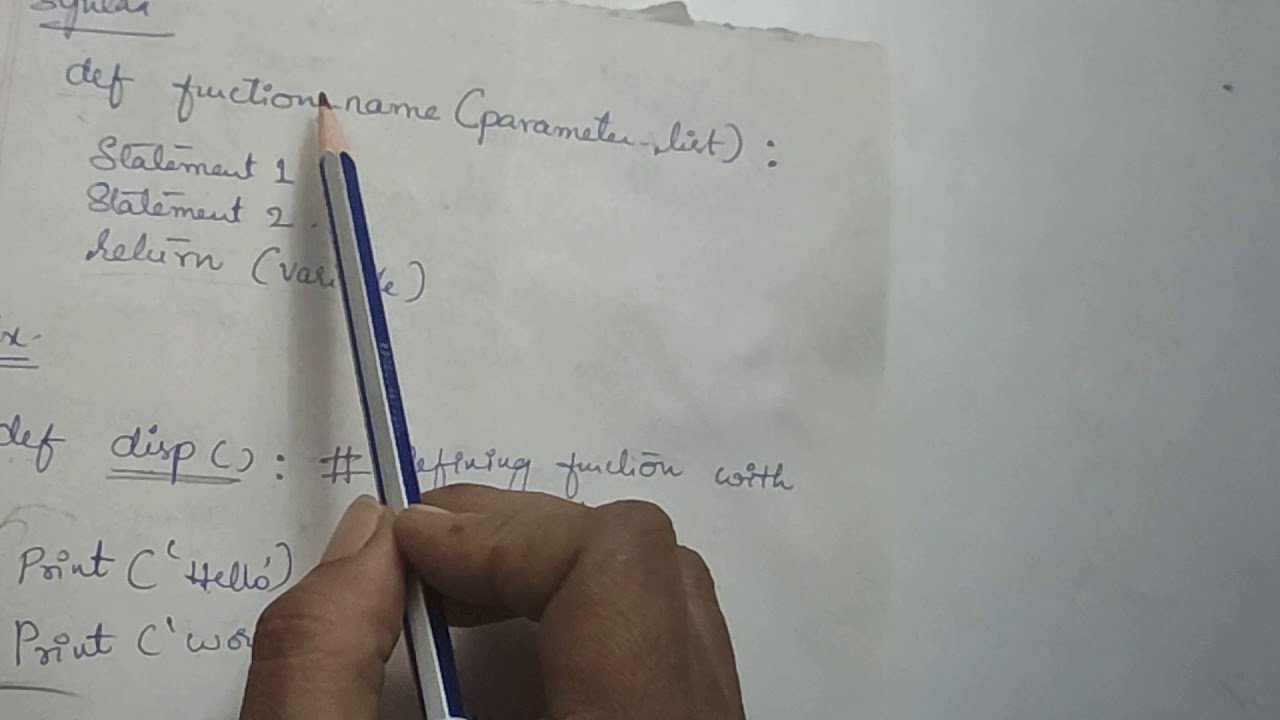 Syntax
def function-name (parameter-list) :
Statement 1
Statement 2 .
return (
Ex.
def disp () : # defining function with
Print ('Hello')
Print ('